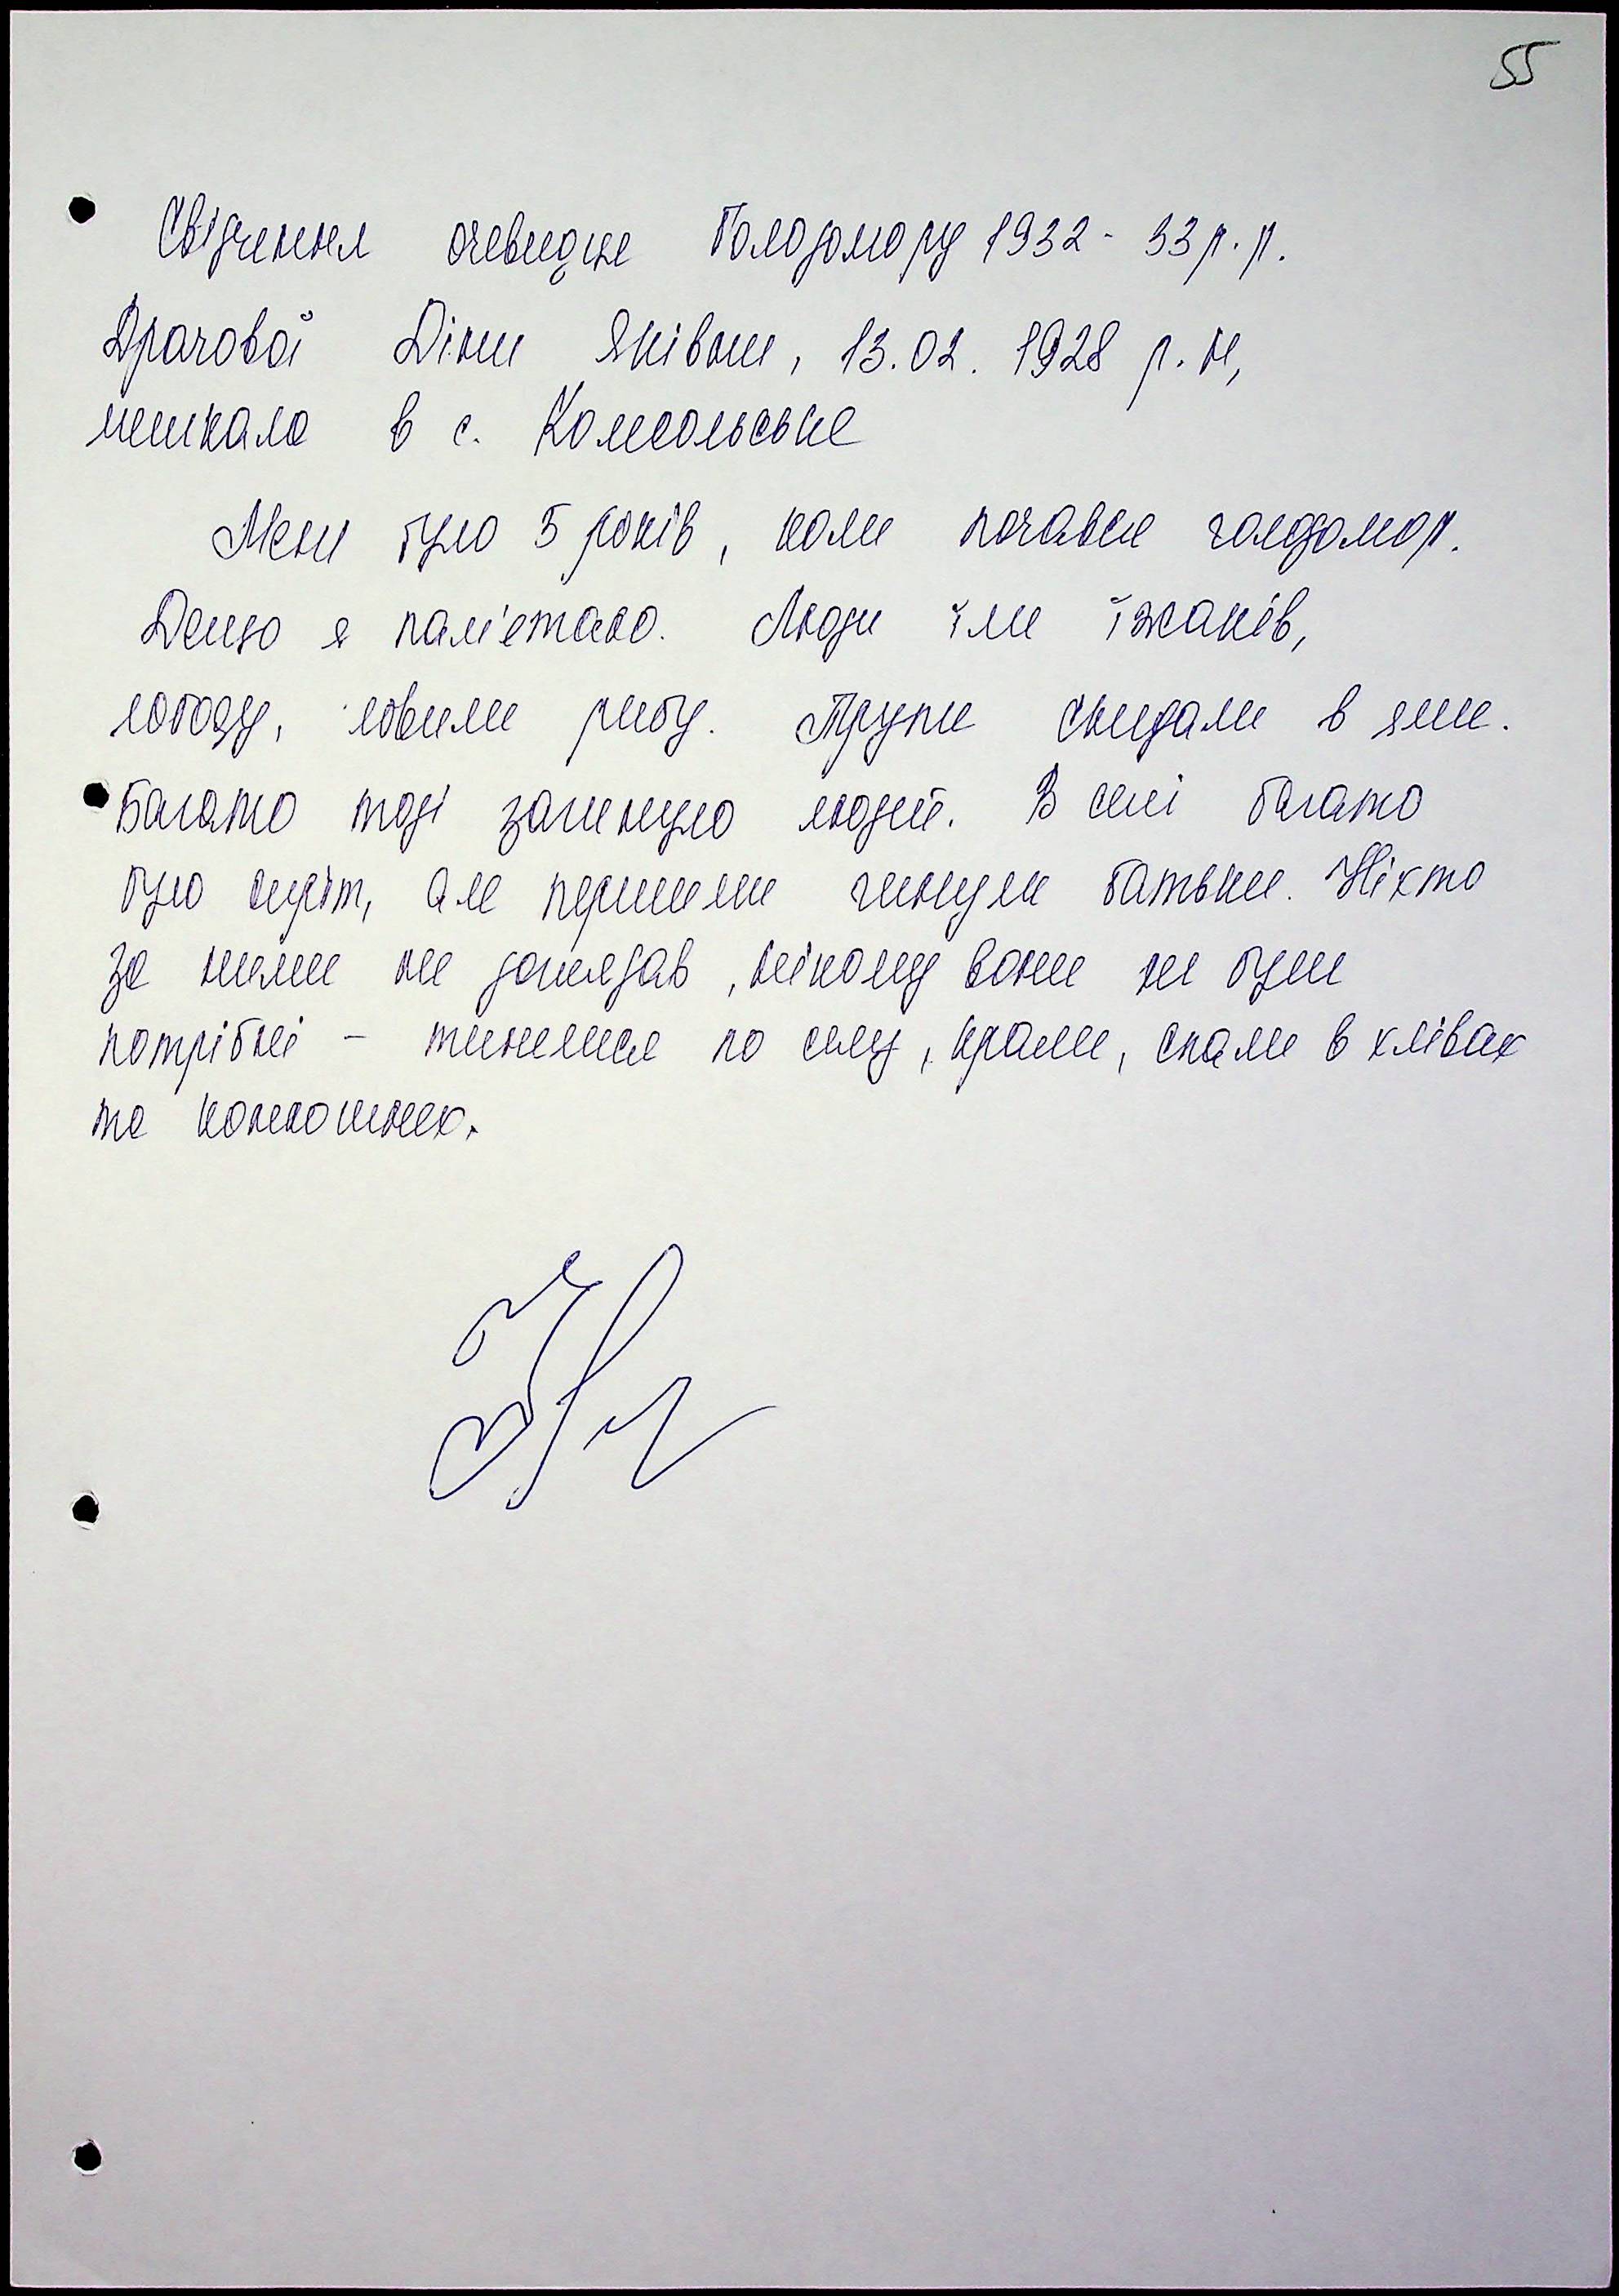 55
Свідчення очевидця Голодомору 1932 - 33 р.р.
Драчової Діни Яківни, 13.02. 1928 р.н,
мешкала в с. Комсольське
Мені було 5 років, коли почався голодомор.
Дещо я пам'ятаю. Люди їли їжаків,
лободу, ловили рибу. Трупи скидали в ями.
Багато тоді загинуло людей. В селі багато
було сиріт, але першими гинули батьки. Ніхто
за ними не доглядав, нікому вони не були
потрібні - тинялися по селу, крали, спали в хлівах
та конюшнях.